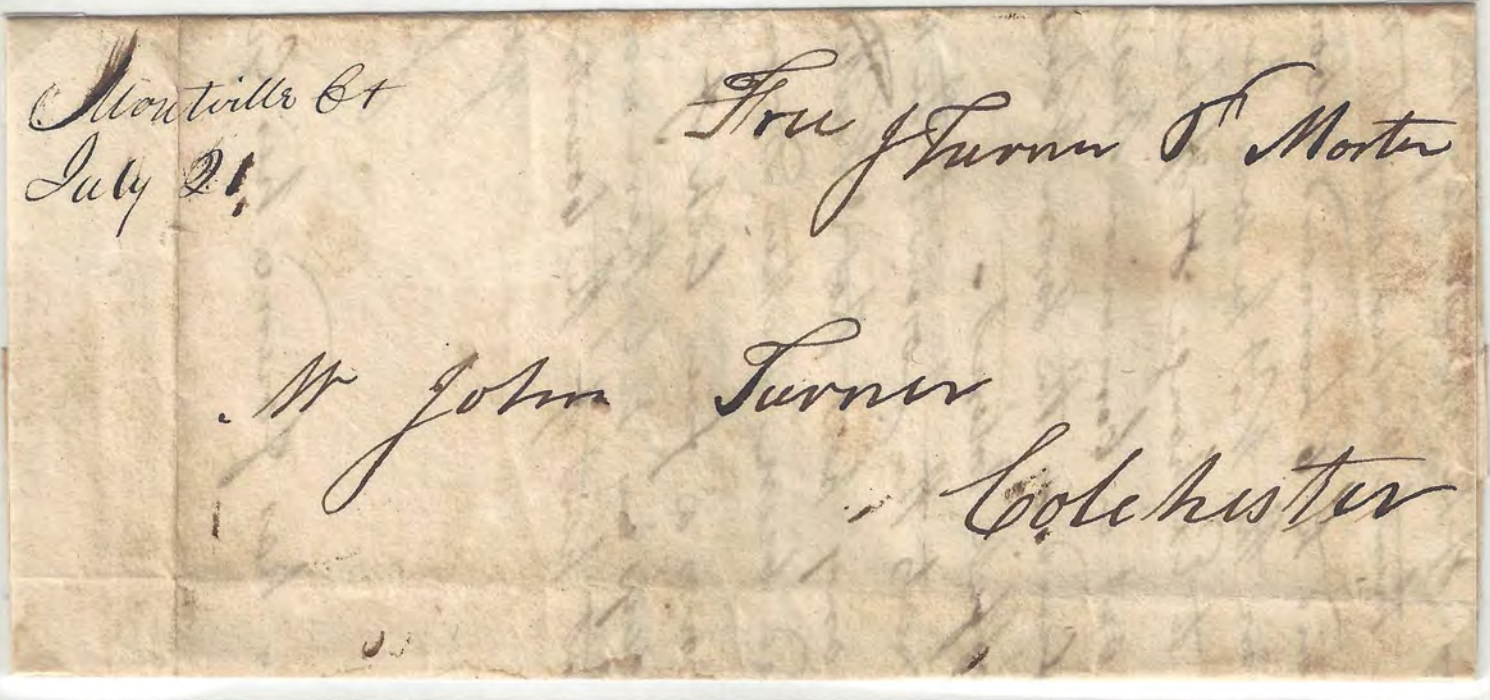 Montville Ct
July 21
Free J Turner P Master
Mr John Turner
Colchester